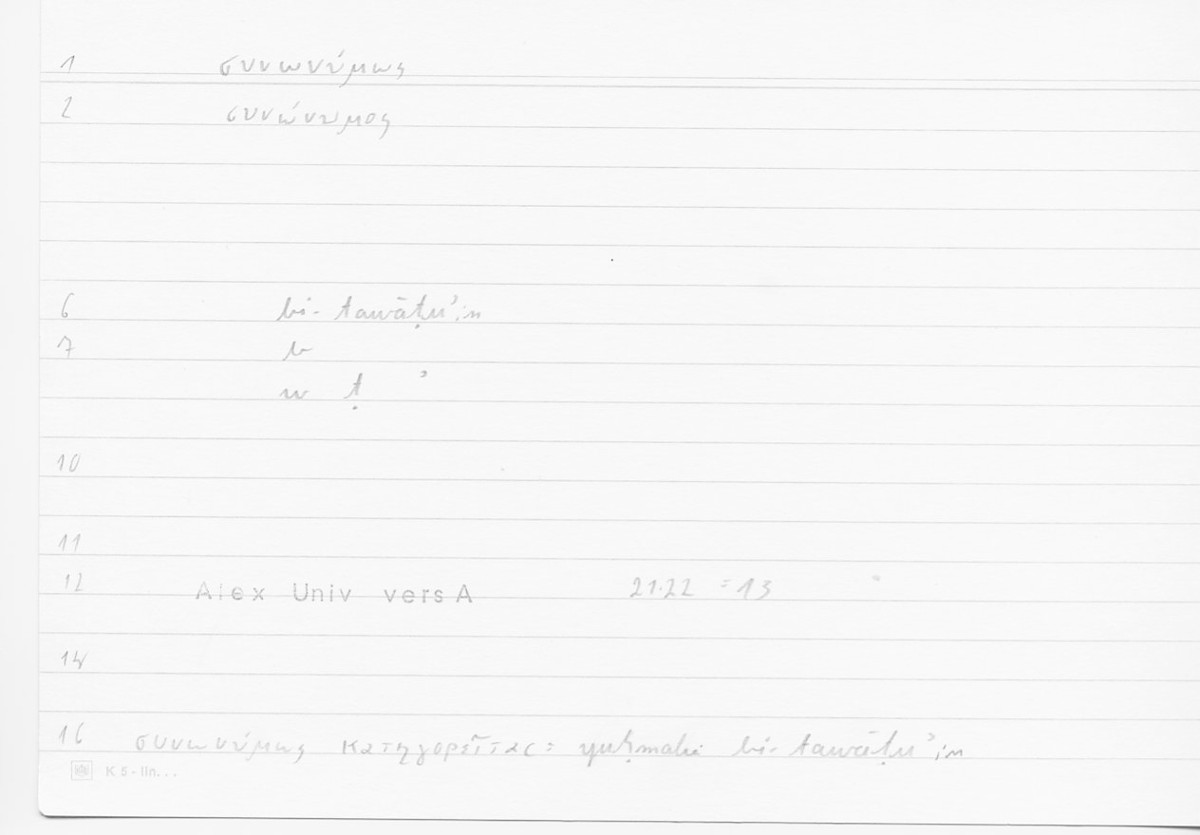 1 συνωνύμως
2 συνώνυμος
6 bi-tawāṭuʾin
7 b
w ṭ ʾ
10
11
12 Alex Univ vers A 21.22 = 13
14
16 συνωνύμως κατηγορεῖται = yuḥmalu bi-tawāṭuʾin
K 5 - lin. . .